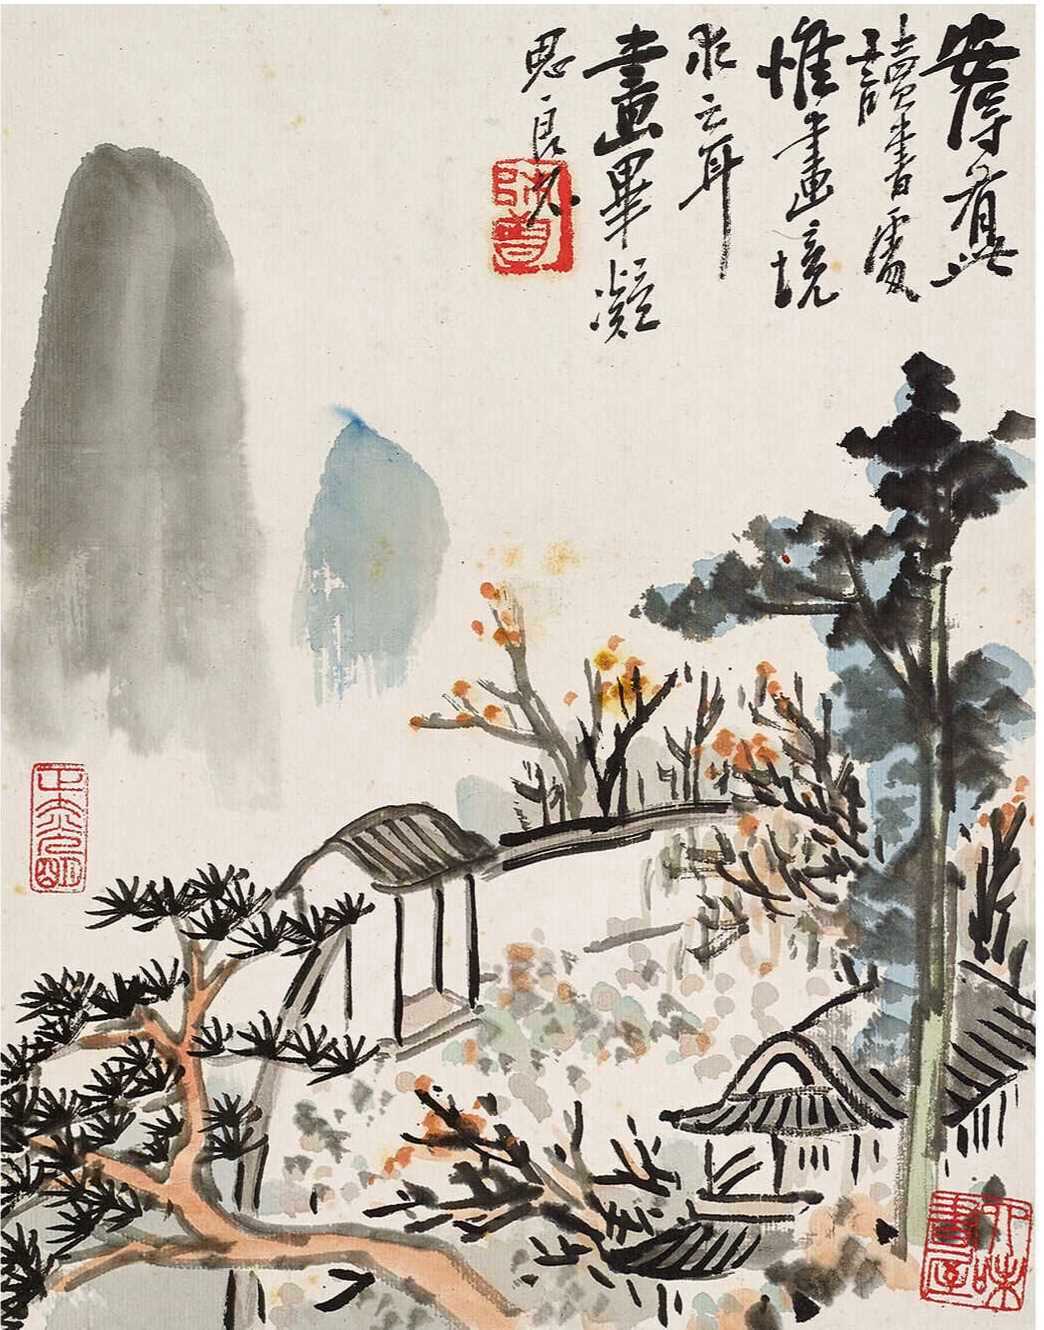 安得有此
讀書處
惟畫境
求之耳
畫畢凝
思良久
師曾